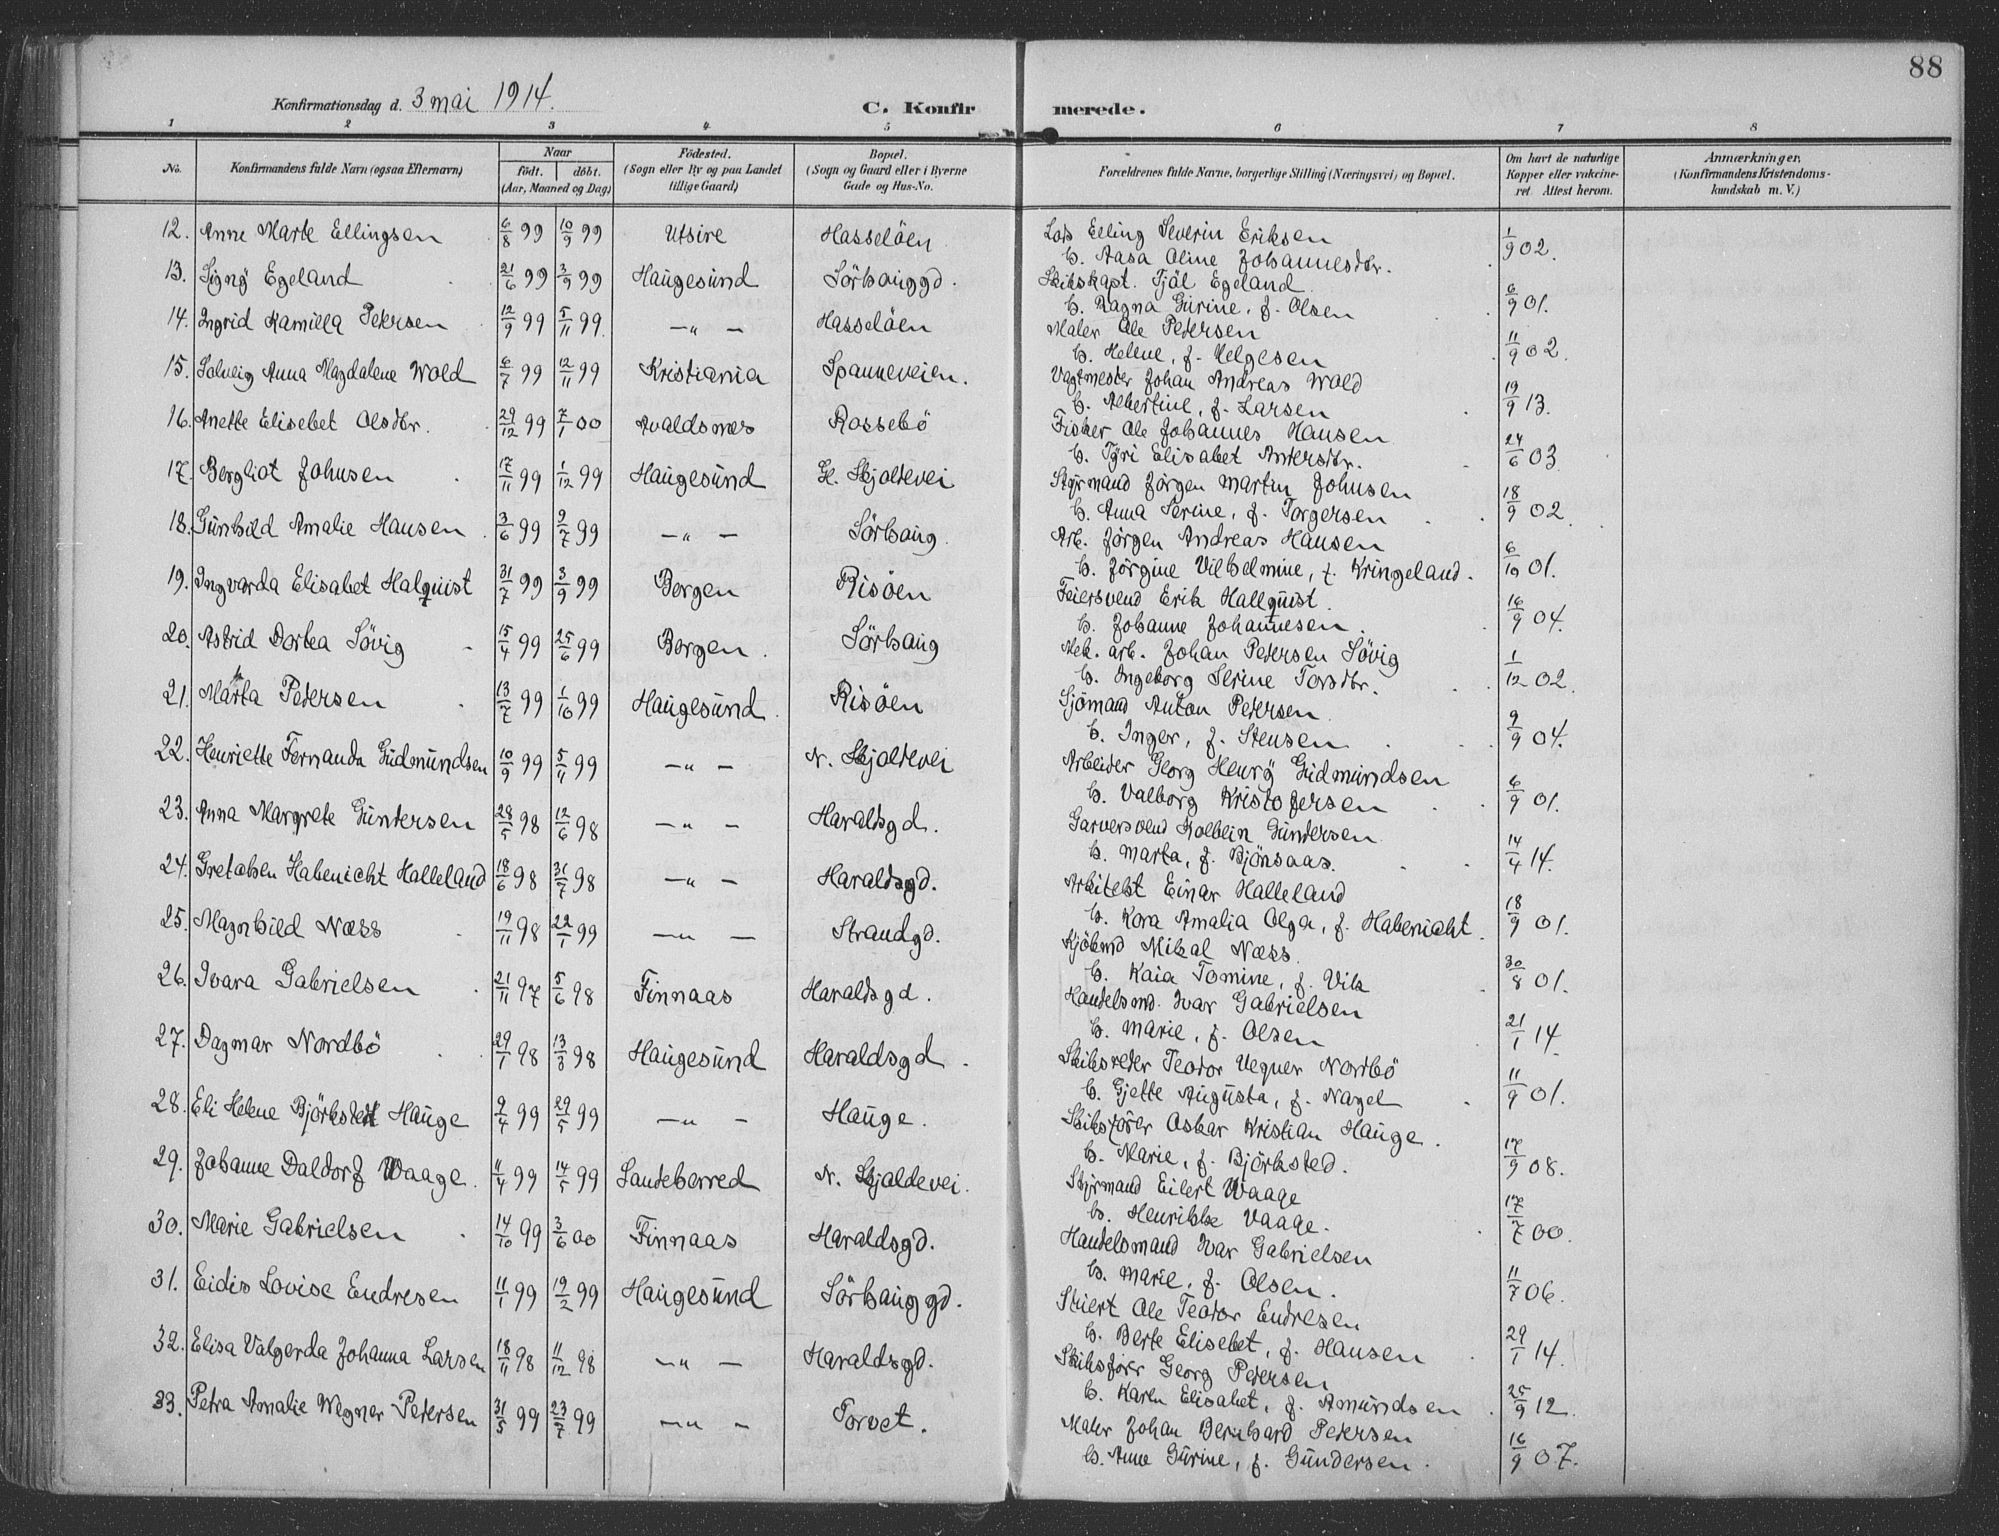 88
Konfirmationsdag d. 3 mai 1914.
C. Konfirmerede.
1 2 3 4 5 6 7 8
No. Konfirmandens fulde Navn (ogsaa Efternavn) Naar født. døbt. (Aar, Maaned og Dag) Fødested. (Sogn eller By og paa Landet tillige Gaard) Bopæl. (Sogn og Gaard eller i Byerne Gade og Hus-No. Forældrenes fulde Navne, borgerlige Stilling (Næringsvei) og Bopæl. Om havt de naturlige Kopper eller vakcineret. Attest herom. Anmærkninger, (Konfirmandens Kristendomskundskab m. V.)
12. Anne Marte Ellingsen 6/8 99 10/9 99 Utsire Hasseløen Lods Elling Severin Eriksen 1/9 02.
h. Aasa Oline Johannesdtr.
13. Signy Egeland 21/6 99 3/9 99 Haugesund Sørhauggd. Skibskapt. Tjøl Egeland 6/9 01.
h. Ragna Gurine, f. Olsen
14. Ingrid Kamilla Petersen 12/9 99 5/11 99. —„— Hasseløen Maler Ole Petersen 11/9 02.
h. Helene, f. Helgesen
15. Solveig Anna Magdalene Wold 6/7 99 12/11 99 Kristiania Spanneveien. Vagtmester Johan Andreas Wold 19/9 13.
h. Albertine, f. Larsen
16. Anette Elisebet Olsdtr. 29/12 99 7/1 00 Avaldsnes Rossebø Fisker Ole Johannes Hansen 24/6 03
h. Tyri Elisabet Andersdtr.
17. Bergliot Johnsen 17/11 99 1/12 99 Haugesund Gl. Skjoldevei Styrmand Jørgen Martin Johnsen 18/9 02
h. Anna Serine, f. Torgersen
18. Gunhild Amalie Hansen 3/6 99 9/7 99 —„— Sørhaug. Arb. Jørgen Andreas Hansen 6/10 01.
h. Jørgine Vilhelmine, f. Kringeland.
19. Ingvarda Elisabet Halquist 31/7 99 3/9 99 Bergen Risøen Feiersvend Erik Hallquist. 16/9 04.
h. Johanne Johannesen.
20. Astrid Dortea Søvig 15/4 99 25/6 99 Bergen. Sørhaug Mek. arb. Johan Petersen Søvig 1/12 02.
h. Ingeborg Serine Torsdtr.
21. Marta Petersen 13/7 99 1/10 99 Haugesund Risøen Sjømand Anton Petersen 9/9 04.
h. Inger, f. Stensen
22. Henriette Fernanda Gudmundsen 10/9 99 5/11 99 —„— N. Skjoldevei Arbeider Georg Henry Gudmundsen 6/9 01.
h. Valborg Kristofersen
23. Anna Margrete Gundersen 28/5 98 12/6 98 —„— Haraldsgd. Garversvend Kolbein Gundersen 14/4 14.
h. Marta, f. Bjønsaas.
24. Gretchen Habenicht Halleland 18/6 98 31/7 98 —„— Haraldsgd. Arkitekt Einar Halleland 18/9 01.
h. Kora Amalia Olga, f. Habenicht.
25. Magnhild Næss 19/11 98 22/1 99 —„— Strandgd. Kjøbmd Mikal Næss. 30/8 01.
h. Kaia Tomine, f. Vik
26. Ivara Gabrielsen 21/11 97 5/6 98 Finnaas Haraldsgd. Handelsmd. Ivar Gabrielsen 21/1 14.
h. Marie, f. Olsen
27. Dagmar Nordbø 29/1 98 13/3 98 Haugesund Haraldsgd. Skibsreder Teodor Vegner Nordbø 11/9 01.
h. Gjette Augusta, f. Nagel
28. Eli Helene Bjørksted Hauge 9/4 99 29/5 99 —„— Hauge. Skibsfører Oskar Kristian Hauge. 17/9 08.
h. Marie, f. Bjørksted.
29. Johanne Daldorf Waage. 11/4 99 14/5 99 Sandeherred N. Skjoldevei. Styrmand Eilert Waage 17/7 00.
h. Henrikke Vaage.
30. Marie Gabrielsen 14/10 99 3/6 00 Finnaas Haraldsgd. Handelsmand Ivar Gabrielsen 11/7 06.
h. Marie, f. Olsen.
31. Eidis Lovise Endresen 11/1 99 19/2 99 Haugesund Sørhauggd. Ole Teodor Endresen 29/1 14.
h. Berte Elisebet, f. Hansen
32. Elisa Valgerda Johanna Larsen 18/11 98 11/12 98 —„— Haraldsgd. Skibsfører Georg Petersen 25/9 12.
h. Karen Elisabet, f. Amundsen
33. Petra Amalie Wegner Petersen 31/5 99 23/7 99 —„— Torvet. Maler Johan Bernhard Petersen 16/9 07.
h. Anne Gurine, f. Gundersen.